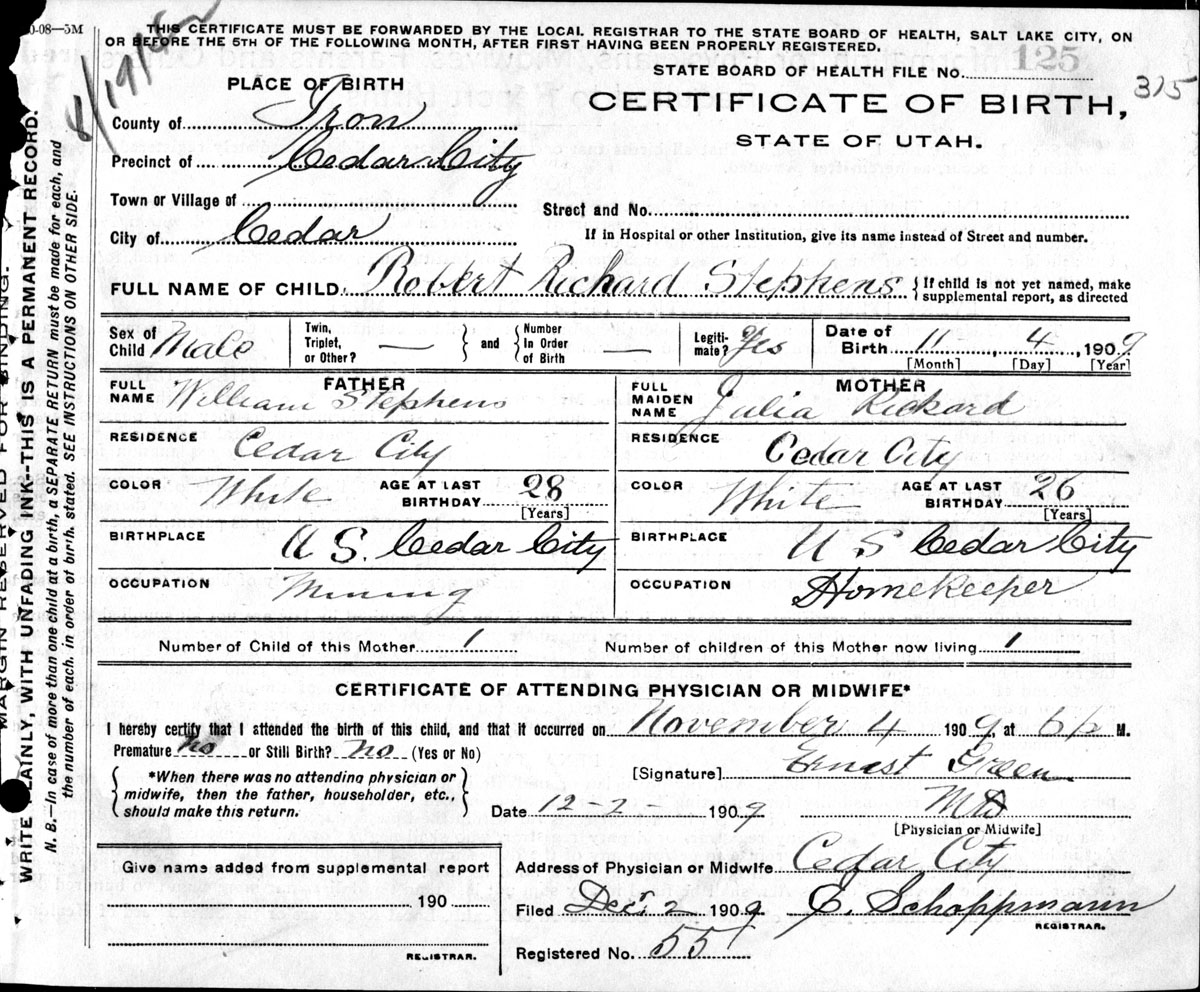 0-08—5M
THIS CERTIFICATE MUST BE FORWARDED BY THE LOCAL REGISTRAR TO THE STATE BOARD OF HEALTH, SALT LAKE CITY, ON
OR BEFORE THE 5TH OF THE FOLLOWING MONTH, AFTER FIRST HAVING BEEN PROPERLY REGISTERED.
STATE BOARD OF HEALTH FILE NO. 125
315
PLACE OF BIRTH
CERTIFICATE OF BIRTH,
STATE OF UTAH.
County of Iron
Precinct of Cedar City
Town or Village of
Street and No.
City of Cedar
If in Hospital or other Institution, give its name instead of Street and number.
FULL NAME OF CHILD: Robert Richard Stephens { If child is not yet named, make
supplemental report, as directed
Sex of Child Male
Twin, Triplet, or Other? — } and { Number In Order of Birth —
Legiti-mate? Yes
Date of Birth 11, 4, 1909
[Month] [Day] [Year]
FATHER
FULL NAME William Stephens
MOTHER
FULL MAIDEN NAME Julia Rickard
RESIDENCE Cedar City
RESIDENCE Cedar City
COLOR White AGE AT LAST BIRTHDAY 28 [Years]
COLOR White AGE AT LAST BIRTHDAY 26 [Years]
BIRTHPLACE U S. Cedar City
BIRTHPLACE U S Cedar City
OCCUPATION Mining
OCCUPATION Homekeeper
Number of Child of this Mother 1 Number of children of this Mother now living 1
CERTIFICATE OF ATTENDING PHYSICIAN OR MIDWIFE*
I hereby certify that I attended the birth of this child, and that it occurred on November 4 1909, at 6 p M.
Premature no or Still Birth? no (Yes or No)
*When there was no attending physician or
midwife, then the father, householder, etc.,
should make this return.
[Signature] Ernest Green
Date 12-2- 1909 MD
[Physician or Midwife]
Give name added from supplemental report
190
REGISTRAR.
Address of Physician or Midwife Cedar City
Filed Dec. 2 1909 E. Schoppmann
REGISTRAR.
Registered No. 55
MARGIN RESERVED FOR BINDING.
WRITE PLAINLY, WITH UNFADING INK--THIS IS A PERMANENT RECORD.
N. B.—In case of more than one child at a birth, a SEPARATE RETURN must be made for each, and
the number of each, in order of birth, stated. SEE INSTRUCTIONS ON OTHER SIDE.